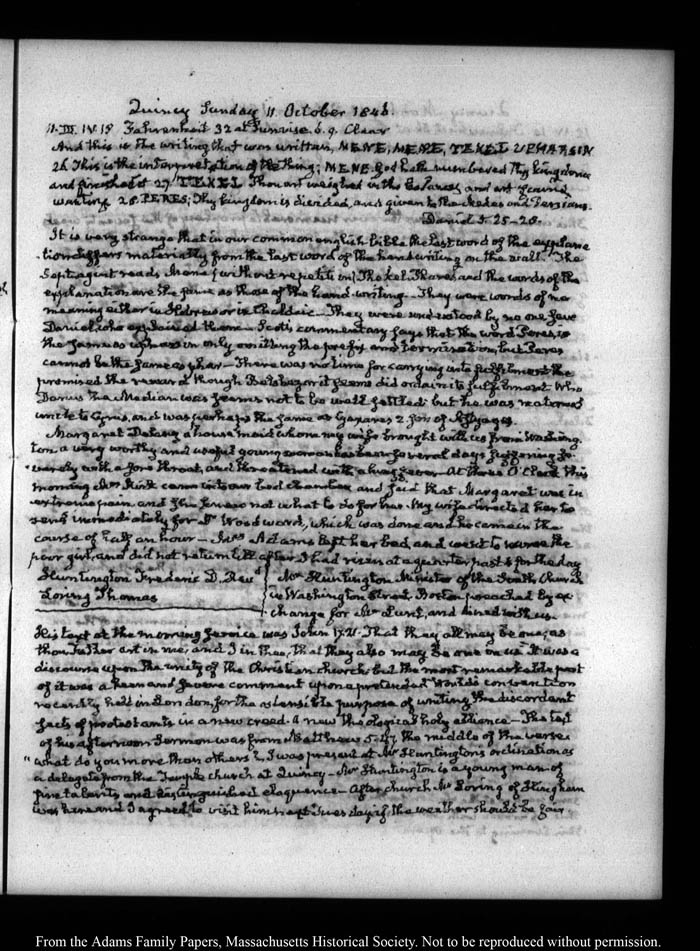 Quincy Sunday 11 October 1846.
Fahrenheit 32 at Sunrise. 6. 9. Clear
And this is the writing that was written, MENE, MENE, TEKEL UPHARSIN
26 This is the interpretation of the thing; MENE. God hath numbered thy kingdom
and finished it 27 TEKEL Thou art weighed in the balances and art found
wanting 28. PERES; Thy kingdom is divided, and given to the Medes and Persians.
Daniel 5. 25-28.
It is very strange that in our common english bible the last word of the explana
tion differs materially from the last word of the hand writing on the wall. The
Septuagint reads Mane (without repetition) Thekel. Phares and the words of the
explanation are the same as those of the hand-writing— They were words of no
meaning either in Hebrew or in Chaldaic— They were understood by no one save
Daniel, who explained them— Scott's commentary says that the word Peres is
the same as upharsin only omitting the prefix and termination, but Peres
cannot be the same as phar— There was no time for carrying into fulfilment the
promised the reward though Belshazzar it seems did ordain its fulfilment. Who
Darius the Median was seems not to be well settled; but he was maternal
uncle to Cyrus, and was perhaps the same as Cyaxares 2. son of Astyages.
Margaret Delany a house maid whom my wife brought with us from Washing
ton. a very worthy and useful young woman has been several days suffering se
verely with a sore throat, and threatened with a fever— At three O'Clock this
morning Mrs Kirk came into our bed chamber and said that Margaret was in
extreme pain and she knew not what to do for her. My wife directed her to
send immediately for Dr Woodward, which was done and he came in the
course of half an hour— Mrs Adams left her bed, and went to nurse the
poor girl, and did not return till after I had risen at a quarter past 5 for the day
Huntington Frederic D. Revd
Mr Huntington Minister of the South Church
Loring Thomas
in Washington Street Boston preached by ex
change for Mr Lunt, and dined with us.
His text at the morning service was John 17.21. That they all may be one; as
thou Father art in me, and I in thee, that they also may be one in us. It was a
discourse upon the unity of the Christian church but the most remarkable part
of it was a keen and severe comment upon a pretended World's convention
recently held in London, for the ostensible purpose of uniting the discordant
sects of protestants in a new creed. A new theological holy alliance— The text
of his afternoon Sermon was from Matthew 5.47 the middle of the verse.
"what do you more than others?" I was present at Mr Huntington's ordination as
a delegate from the Temple church at Quincy— Mr Huntington is a young man of
fine talents and distinguished eloquence— After church Mr Loring of Hingham
was here and I agreed to visit him next Tuesday if the weather should be fair
From the Adams Family Papers, Massachusetts Historical Society. Not to be reproduced without permission.